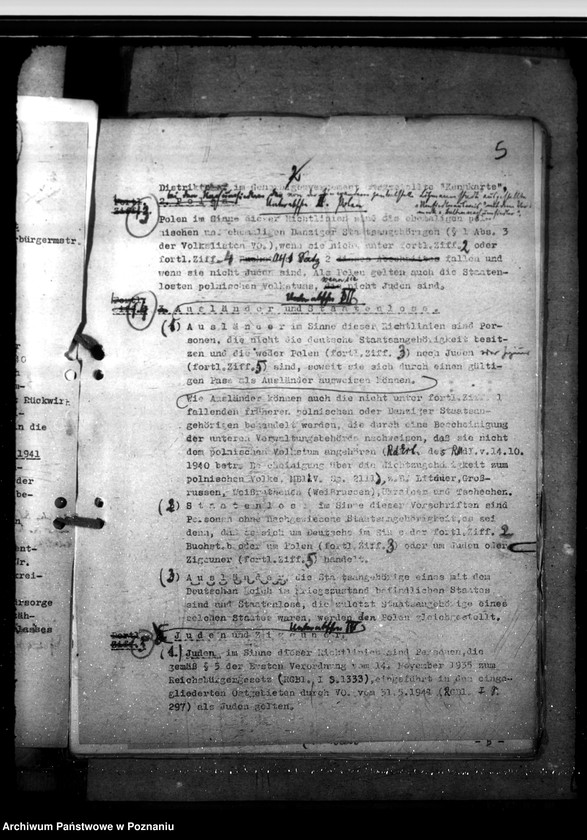 5
2
Distrikt in dem ausgestellte "Kennkarte".
Unterabschn. II. Polen
3
Polen im Sinne dieser Richtlinien sind die ehemaligen pol-
nischen und ehemaligen Danziger Staatsangehörigen (§ 1 Abs. 3
der Volkslisten VO.), wenn sie nicht unter fortl.Ziff. 2 oder
fortl.Ziff. 4 Abs. 1 Satz 2 fallen und
wenn sie nicht Juden sind. Als Polen gelten auch die Staaten-
losen polnischen Volkstums, wenn sie nicht Juden sind.
Unterabschn. III
4
Ausländer und Staatenlose.
(1) Ausländer im Sinne dieser Richtlinien sind Per-
sonen, die nicht die deutsche Staatsangehörigkeit besit-
zen und die weder Polen (fortl.Ziff. 3) noch Juden oder Zigeuner
(fortl.Ziff. 5) sind, soweit sie sich durch einen gülti-
gen Pass als Ausländer ausweisen können.
Wie Ausländer können auch die nicht unter fortl.Ziff. 1
fallenden früheren polnischen oder Danziger Staatsan-
gehörigen behandelt werden, die durch eine Bescheinigung
der unteren Verwaltungsbehörde nachweisen, daß sie nicht
dem polnischen Volkstum angehören (RdErl. des RMdI. v. 14.10.
1940 betr. Bescheinigung über die Nichtzugehörigkeit zum
polnischen Volke, MBliV. S. 2111), z.B. Litauer, Groß-
russen, Weißruthenen (Weißrussen), Ukrainer und Tschechen.
(2) Staatenlose im Sinne dieser Vorschriften sind
Personen ohne nachgewiesene Staatsangehörigkeit, es sei
denn, daß es sich um Deutsche im Sinne der fortl.Ziff. 2
Buchst. b oder um Polen (fortl.Ziff. 3) oder um Juden oder
Zigeuner (fortl.Ziff. 5) handelt.
(3) Ausländer, die Staatsangehörige eines mit dem
Deutschen Reich im Kriegszustand befindlichen Staates
sind und Staatenlose, die zuletzt Staatsangehörige eines
solchen Staates waren, werden den Polen gleichgestellt.
Unterabschn. IV
5
Juden und Zigeuner.
(1) Juden im Sinne dieser Richtlinien sind Personen, die
gemäß § 5 der Ersten Verordnung vom 14. November 1935 zum
Reichsbürgergesetz (RGBl. I S.1333), eingeführt in den einge-
gliederten Ostgebieten durch VO. vom 31.5.1941 (RGBl. I S.
297) als Juden gelten.
- 3 -
rbürgermstr.
Rückwirk
n die
1941
der
be-
nt-
Dr.
krei-
ürsorge
Archiwum Państwowe w Poznaniu